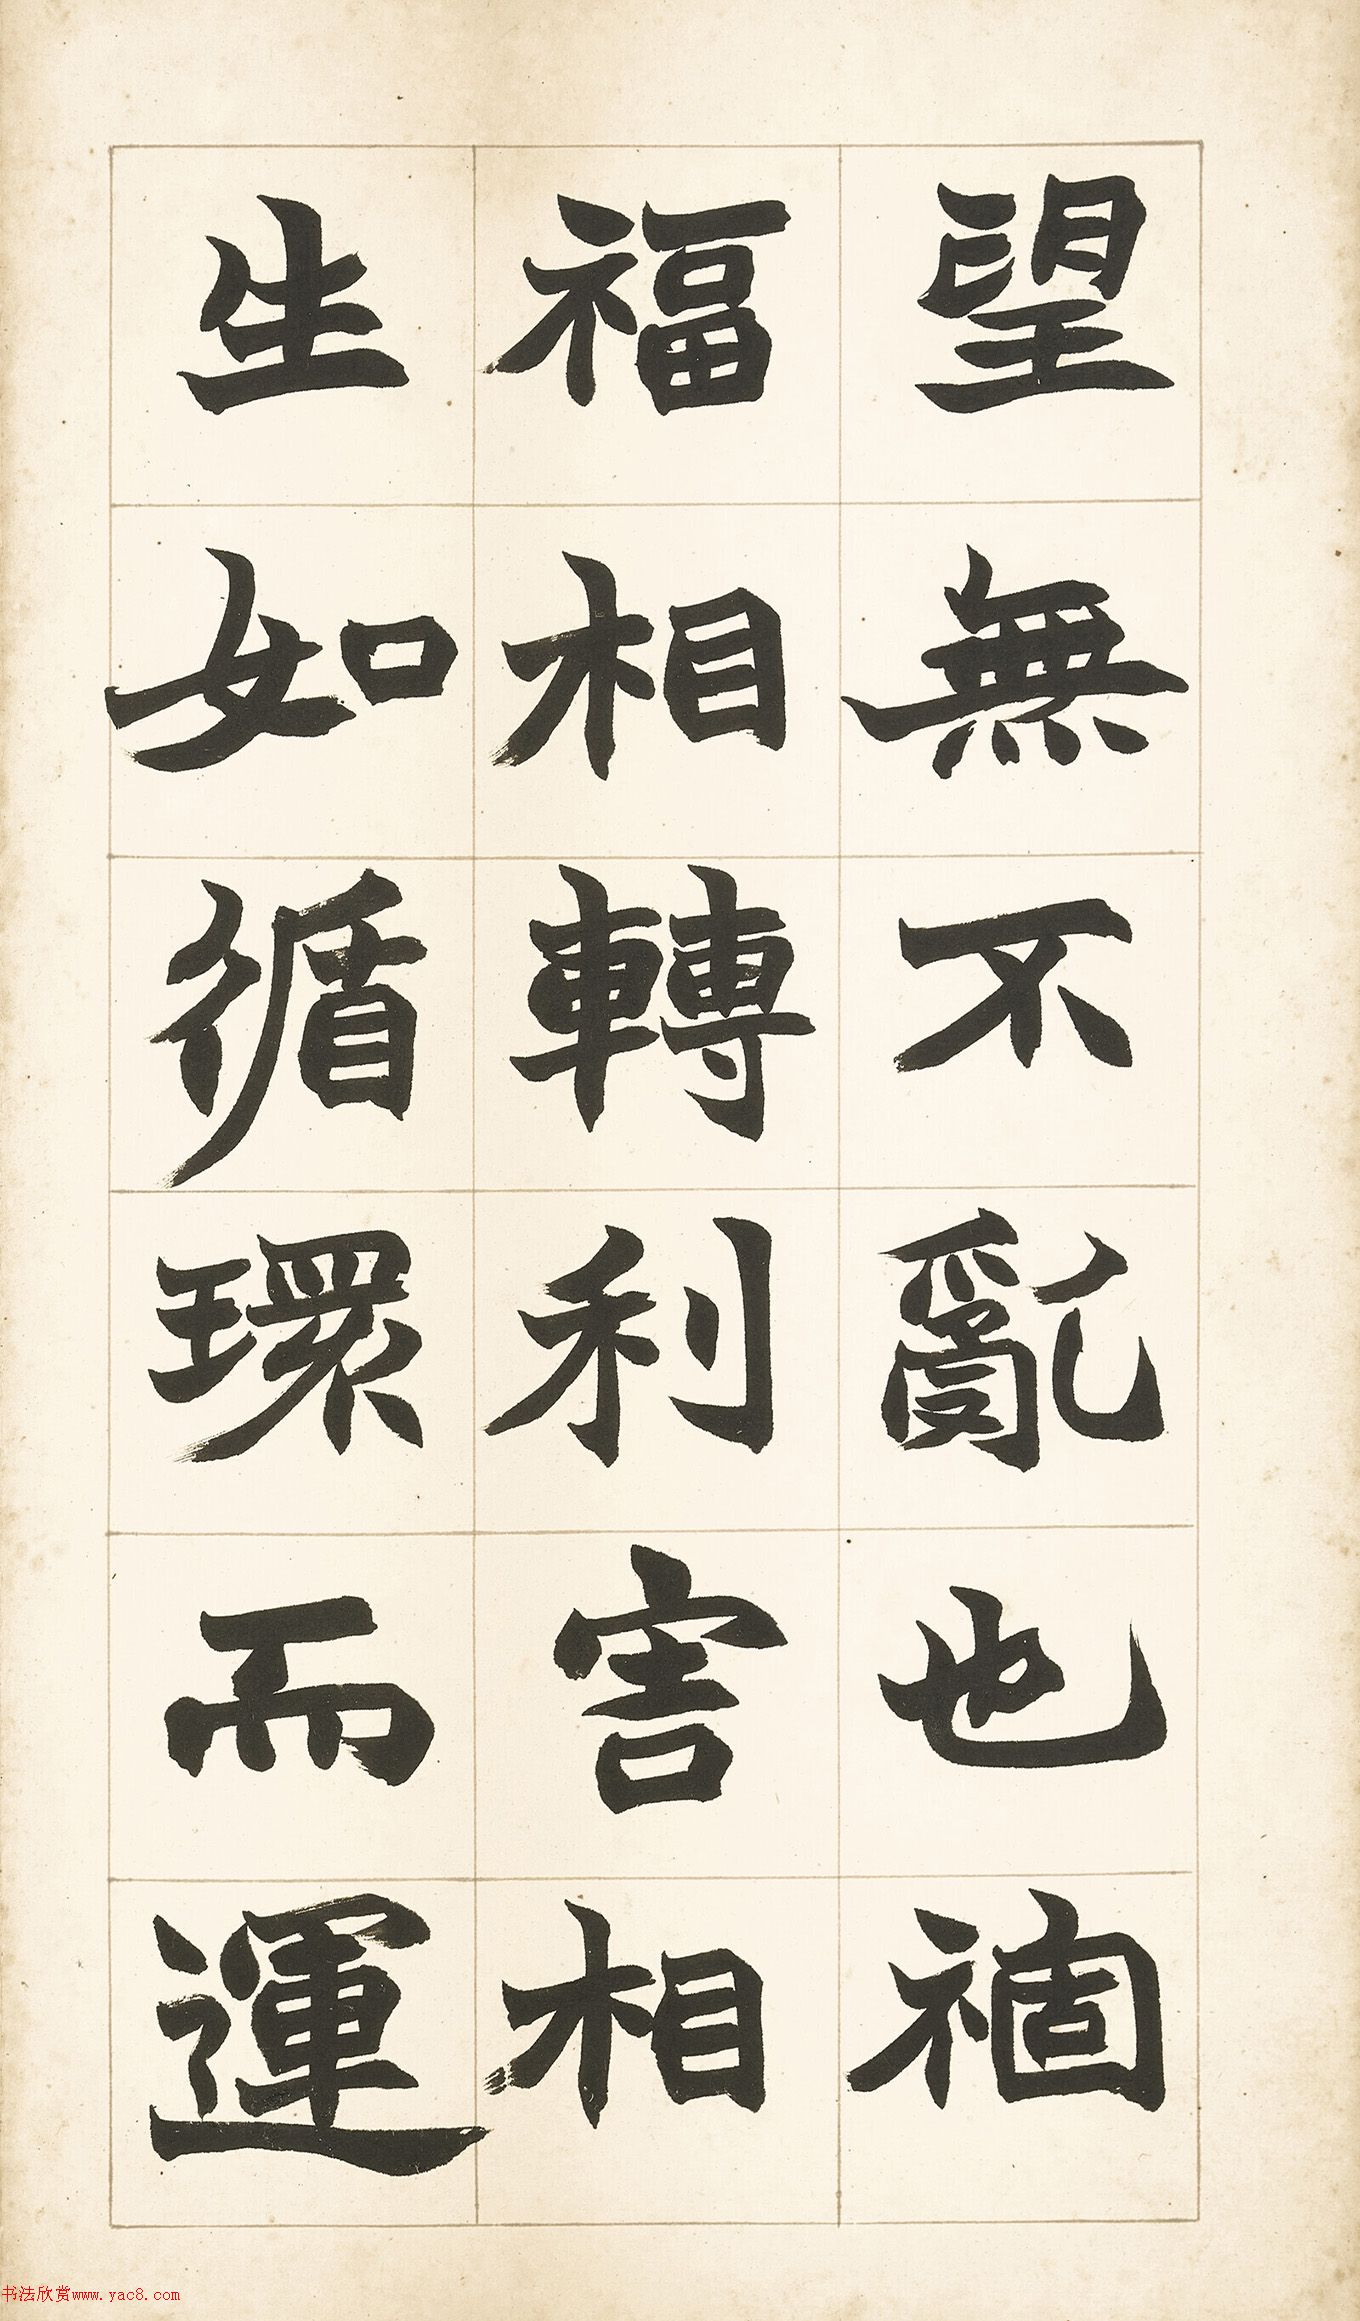 望無不亂也禍
福相轉利害相
生如循環而運
书法欣赏www.yac8.com